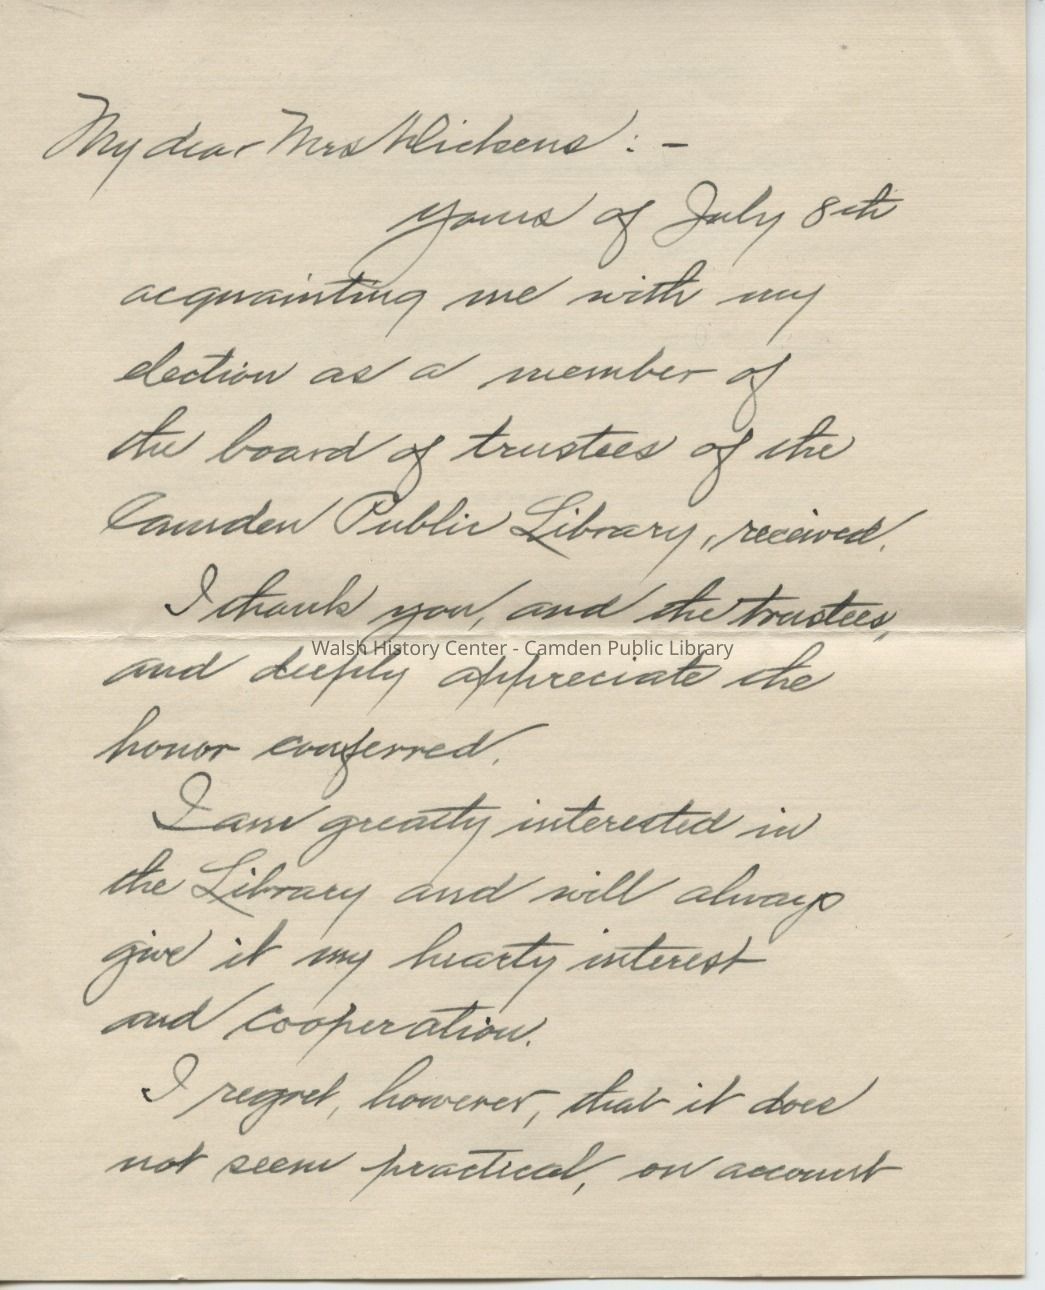 My dear Mrs Dickens : -
Yours of July 8th
acquainting me with my
election as a member of
the board of trustees of the
Camden Public Library, received.
I thank you, and the trustees,
Walsh History Center - Camden Public Library
and deeply appreciate the
honor conferred.
I am greatly interested in
the Library and will always
give it my hearty interest
and cooperation.
I regret, however, that it does
not seem practical, on account